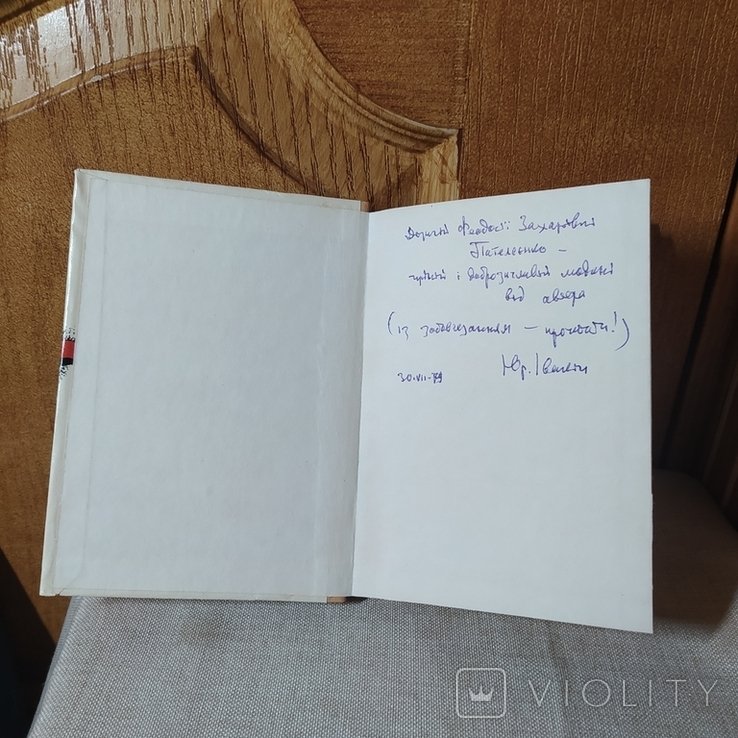 Дорогій Феодосії Захарівні
Пателенко –
щирій і доброзичливій людині
від автора
(із зобов'язанням – прочитати!)
30.VII-79 Юр. Івакін
VIOLITY